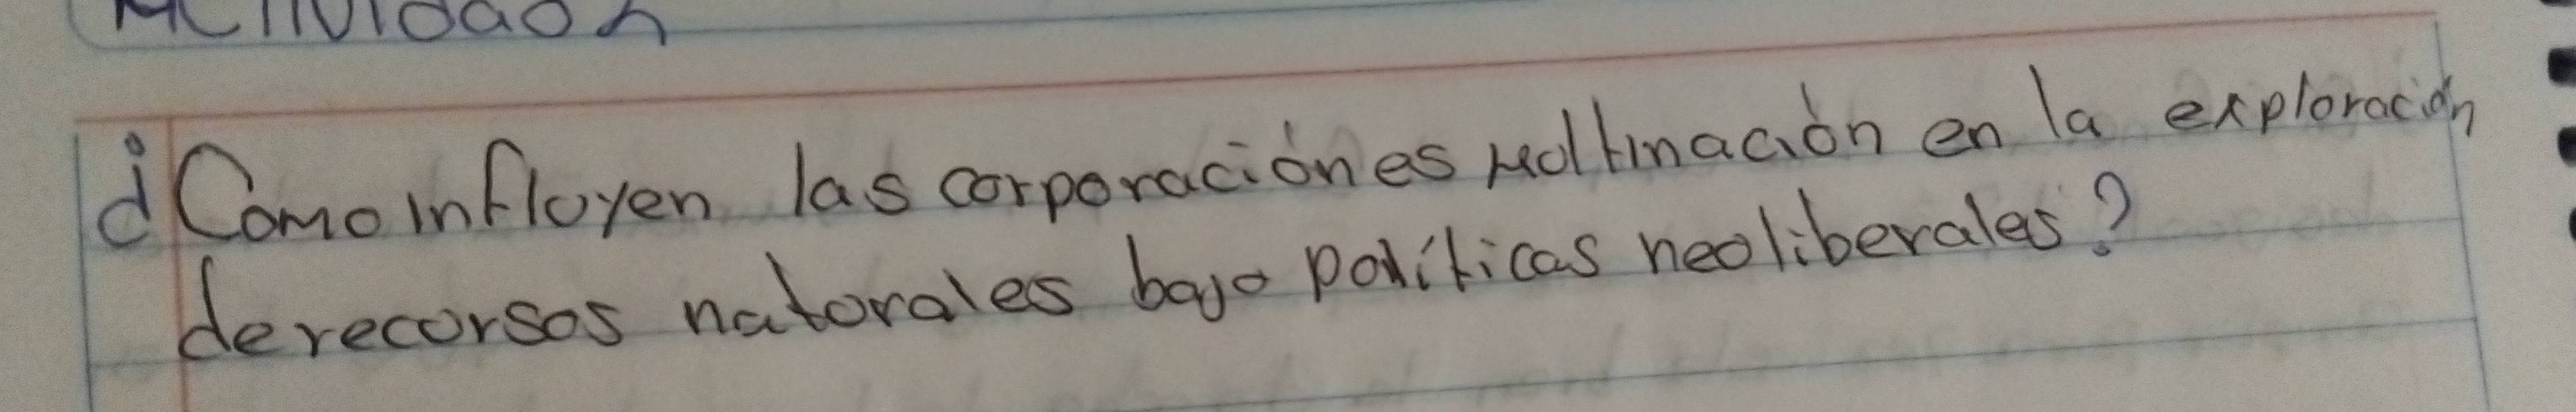 Actividad
¿Como influyen las corporaciónes multinación en la exploración
de recursos naturales bajo políticas neoliberales?